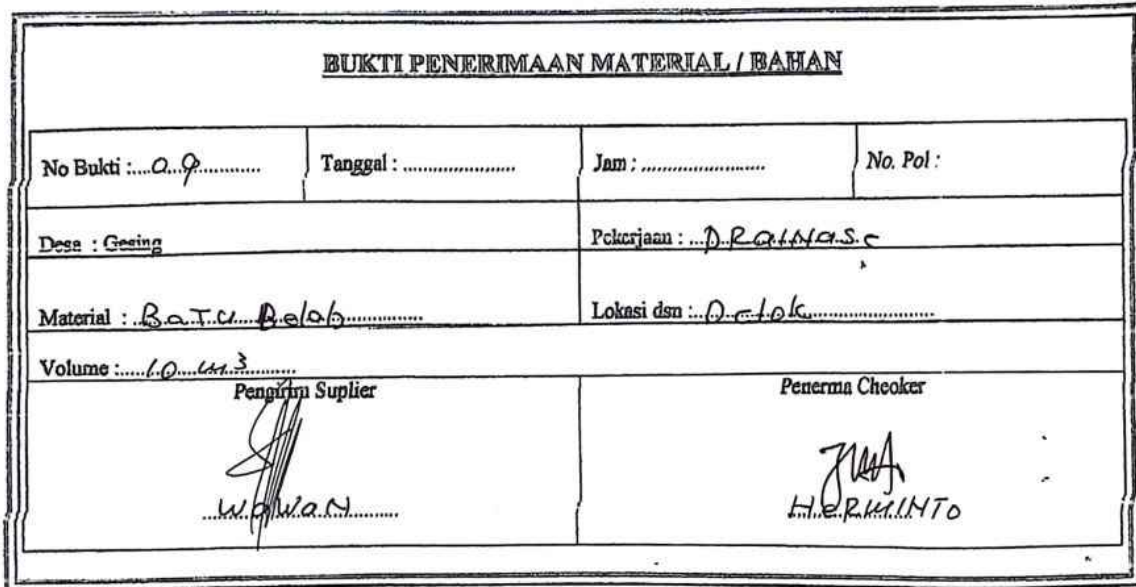 BUKTI PENERIMAAN MATERIAL / BAHAN
No Bukti : 09 Tanggal : Jam : No. Pol :
Desa : Gesing Pekerjaan : DRaiNaSe
Material : BaTu Belah Lokasi dsn :
Volume : 10 m³
Pengirim Suplier Penerma Checker
WaWaN HeRMINTo